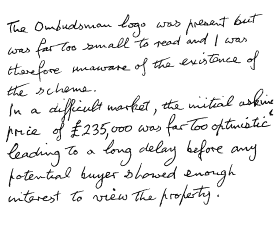 The Ombudsman logo was present but
was far too small to read and I was
therefore unaware of the existence of
the scheme.
In a difficult market, the initial asking
price of £235,000 was far too optimistic
leading to a long delay before any
potential buyer showed enough
interest to view the property.